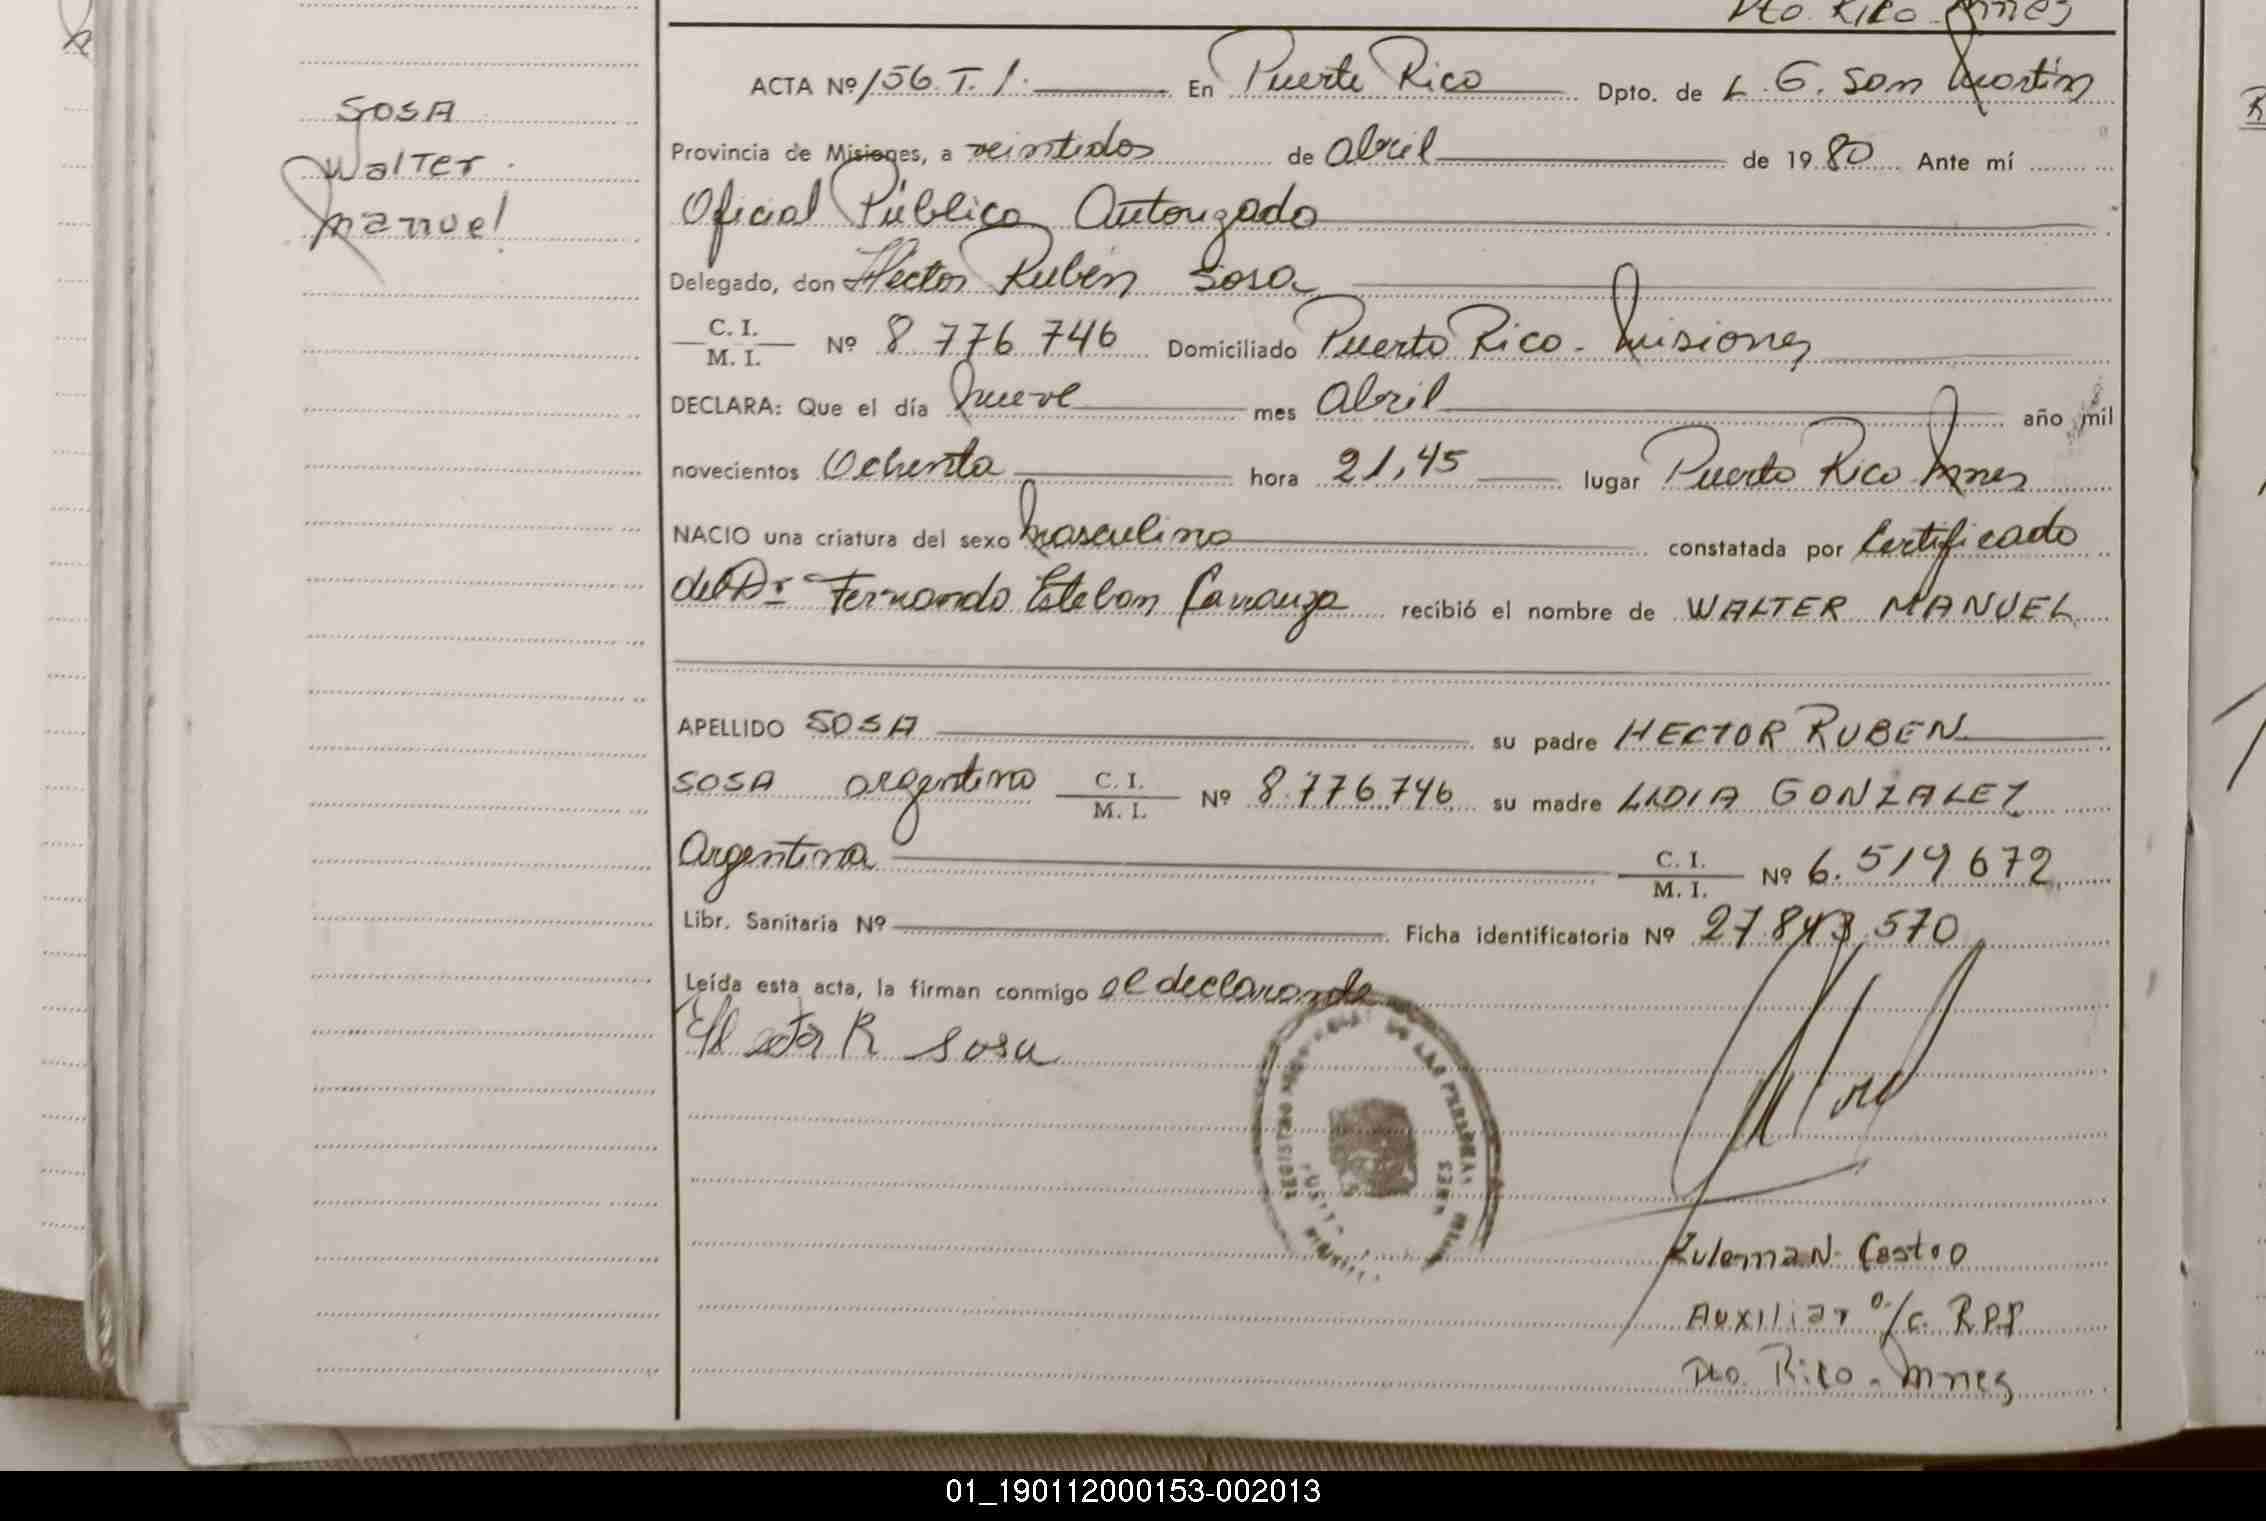 Pto. Rico - Mnes
SOSA
Walter
Manuel
ACTA Nº 156. T. 1. En Puerto Rico Dpto. de L. G. San Martin
Provincia de Misiones, a veintidos de Abril de 1980 Ante mí
Oficial Público Autorizado
Delegado, don Héctor Rubén Sosa
C. I. / M. I. Nº 8 776 746 Domiciliado Puerto Rico - Misiones
DECLARA: Que el día nueve mes Abril año mil
novecientos Ochenta hora 21,45 lugar Puerto Rico Mnes
NACIO una criatura del sexo masculino constatada por Certificado
del Dr Fernando Esteban Carranza recibió el nombre de WALTER MANUEL
APELLIDO SOSA su padre HECTOR RUBEN
SOSA argentino C. I. / M. I. Nº 8.776.746 su madre LIDIA GONZALEZ
Argentina C. I. / M. I. Nº 6.519 672
Libr. Sanitaria Nº Ficha identificatoria Nº 27.843.570
Leída esta acta, la firman conmigo el declarante
Hector R Sosa
REGISTRO PROVINCIAL DE LAS PERSONAS
Zulema N. Castro
Auxiliar o/c. RPP
Pto. Rico - Mnes
01_190112000153-002013